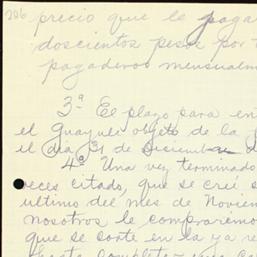 206 precio que le paga
doscientos pesos por t
pagaderos mensualm
3ª El plazo para en
el Guayule objeto de la
el día 31 de Diciembre d
4ª Una vez terminado
veces citado, que se creé s
ultimo del mes de Noviem
nosotros le compraremo
que se corte en la ya re